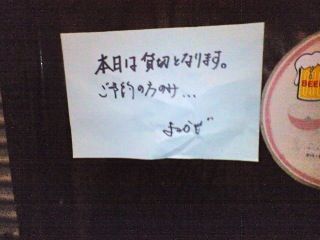 本日は貸切となります。
ご予約の方のみ...
BEER